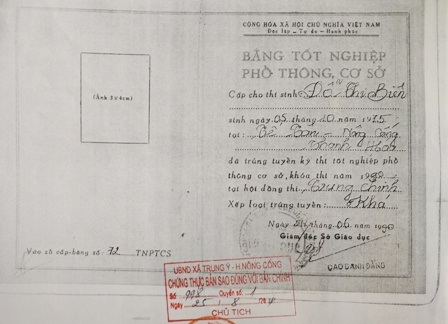 CỘNG HÒA XÃ HỘI CHỦ NGHĨA VIỆT NAM
Độc lập - Tự do - Hạnh phúc
BẰNG TỐT NGHIỆP
PHỔ THÔNG CƠ SỞ
(Ảnh 3x4cm)
Cấp cho thí sinh Đỗ Thị Biển
sinh ngày 05 tháng 10 năm 1975
tại: Nông Cống
Thanh Hóa
đã trúng tuyển kỳ thi tốt nghiệp phổ
thông cơ sở, khóa thi năm 1990
tại hội đồng thi Trung Chính
Xếp loại trúng tuyển: Khá
Ngày tháng 06 năm 1990
Giám đốc Sở Giáo dục
CAO DANH ĐẲNG
Vào sổ cấp bằng số 72 TNPTCS
UBND XÃ TRUNG Ý - H NÔNG CỐNG
CHỨNG THỰC BẢN SAO ĐÚNG VỚI BẢN CHÍNH
Số 998 Quyển số 1
Ngày 25 / 8 /
CHỦ TỊCH